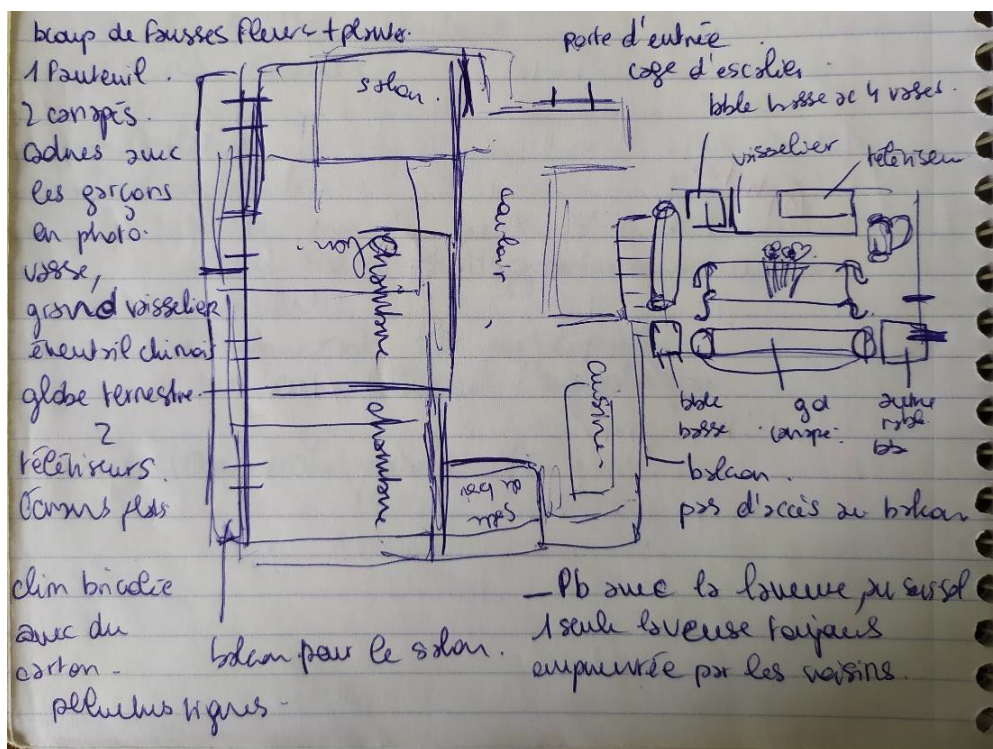 bcoup de fausses fleurs + plantes.
1 fauteuil.
2 canapés.
cadres avec
les garçons
en photo.
vasse,
grand vaisselier
éventail chinois
globe terrestre.
2
téléviseurs.
écrans plats
clim bricolée
avec du
carton.
peluches tigres
salon.
salon.
chambre
chambre
couloir
cuisine
salle
de bain
balcon pour le salon.
porte d'entrée.
cage d'escalier.
tble basse ac 4 vases.
vaisselier
téléviseur
tble
basse
gd
canapé.
autre
table
bas
balcon.
pas d'accès au balcon
— Pb avec la laveuse, au sussol
1 seule laveuse toujours
empruntée par les voisins.